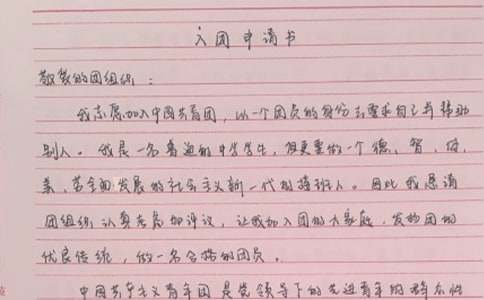 入团申请书
敬爱的团组织:
我志愿加入中国共青团,以一个团员的身份去要求自己与帮助
别人。我是一名普通的中学生,但更要做一个德,智,体,
美,劳全面发展的社会主义新一代的接班人。因此我恳请
团组织认真考虑加评议,让我加入团的大家庭,发扬团的
优良传统,做一名合格的团员。
中国共产主义青年团是党领导下的先进青年的群众性